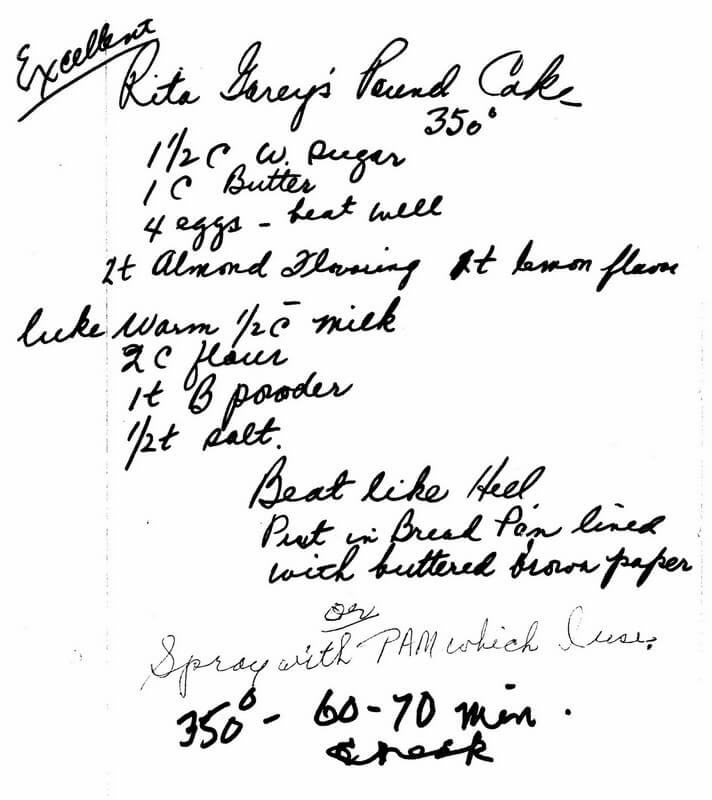 Excellent
Rita Garey's Pound Cake
350°
1 1/2 C W. Sugar
1 C Butter
4 eggs - beat well
2t Almond Flavoring 1t lemon flavor
luke warm 1/2 C milk
2 C flour
1t B powder
1/2t salt.
Beat like Hell.
Put in Bread Pan lined
with buttered brown paper
or
Spray with PAM which I use.
350° - 60-70 min.
check